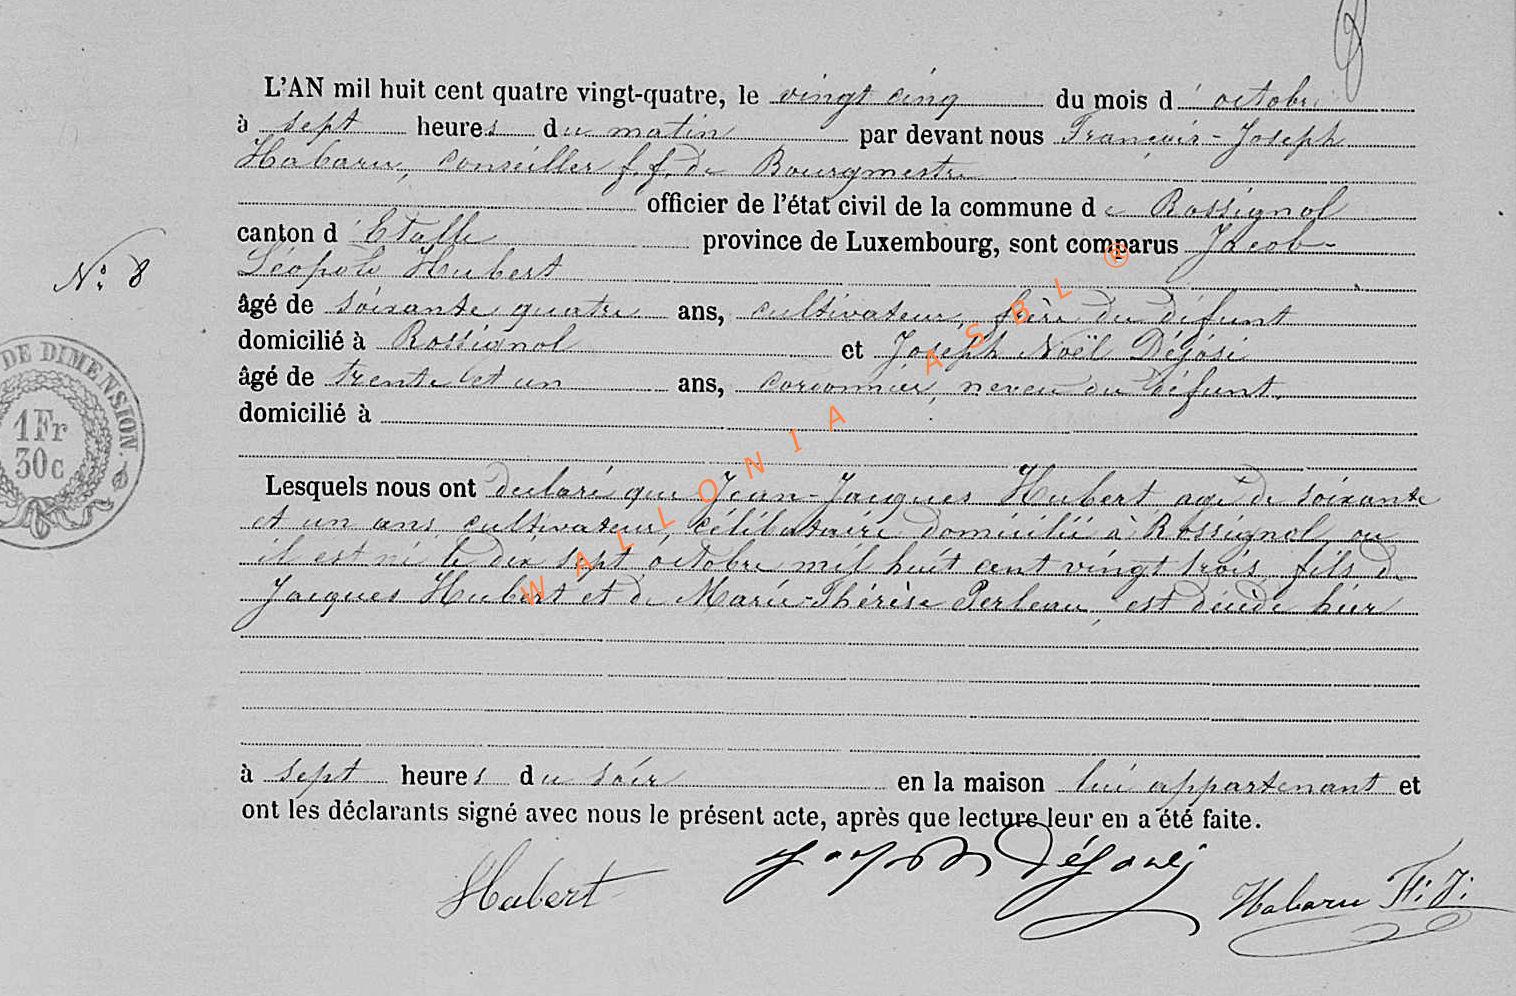 L'AN mil huit cent quatre vingt-quatre, le vingt cinq du mois d'octobre
à sept heures du matin par devant nous François-Joseph
Habaru, conseiller f.f. de Bourgmestre
officier de l'état civil de la commune de Rossignol
canton d'Etalle province de Luxembourg, sont comparus Jacob-
Léopold Hubert
N° 8
âgé de soixante quatre ans, cultivateur, frère du défunt
domicilié à Rossignol et Joseph Noël Déjosé
âgé de trente et un ans, cordonnier, neveu du défunt,
domicilié à
DE DIMENSION.
1Fr
30c
Lesquels nous ont declaré que Jean-Jacques Hubert agé de soixante
et un ans, cultivateur, célibataire domicilié à Rossignol, ou
il est né le dix sept octobre mil huit cent vingt trois, fils de
Jacques Hubert et de Marie-Thérèse Perleau, est décédé hier
à sept heures du soir en la maison lui appartenant et
ont les déclarants signé avec nous le présent acte, après que lecture leur en a été faite.
Hubert Joseph Habaru F. J.
WALLONIA ASBL ®